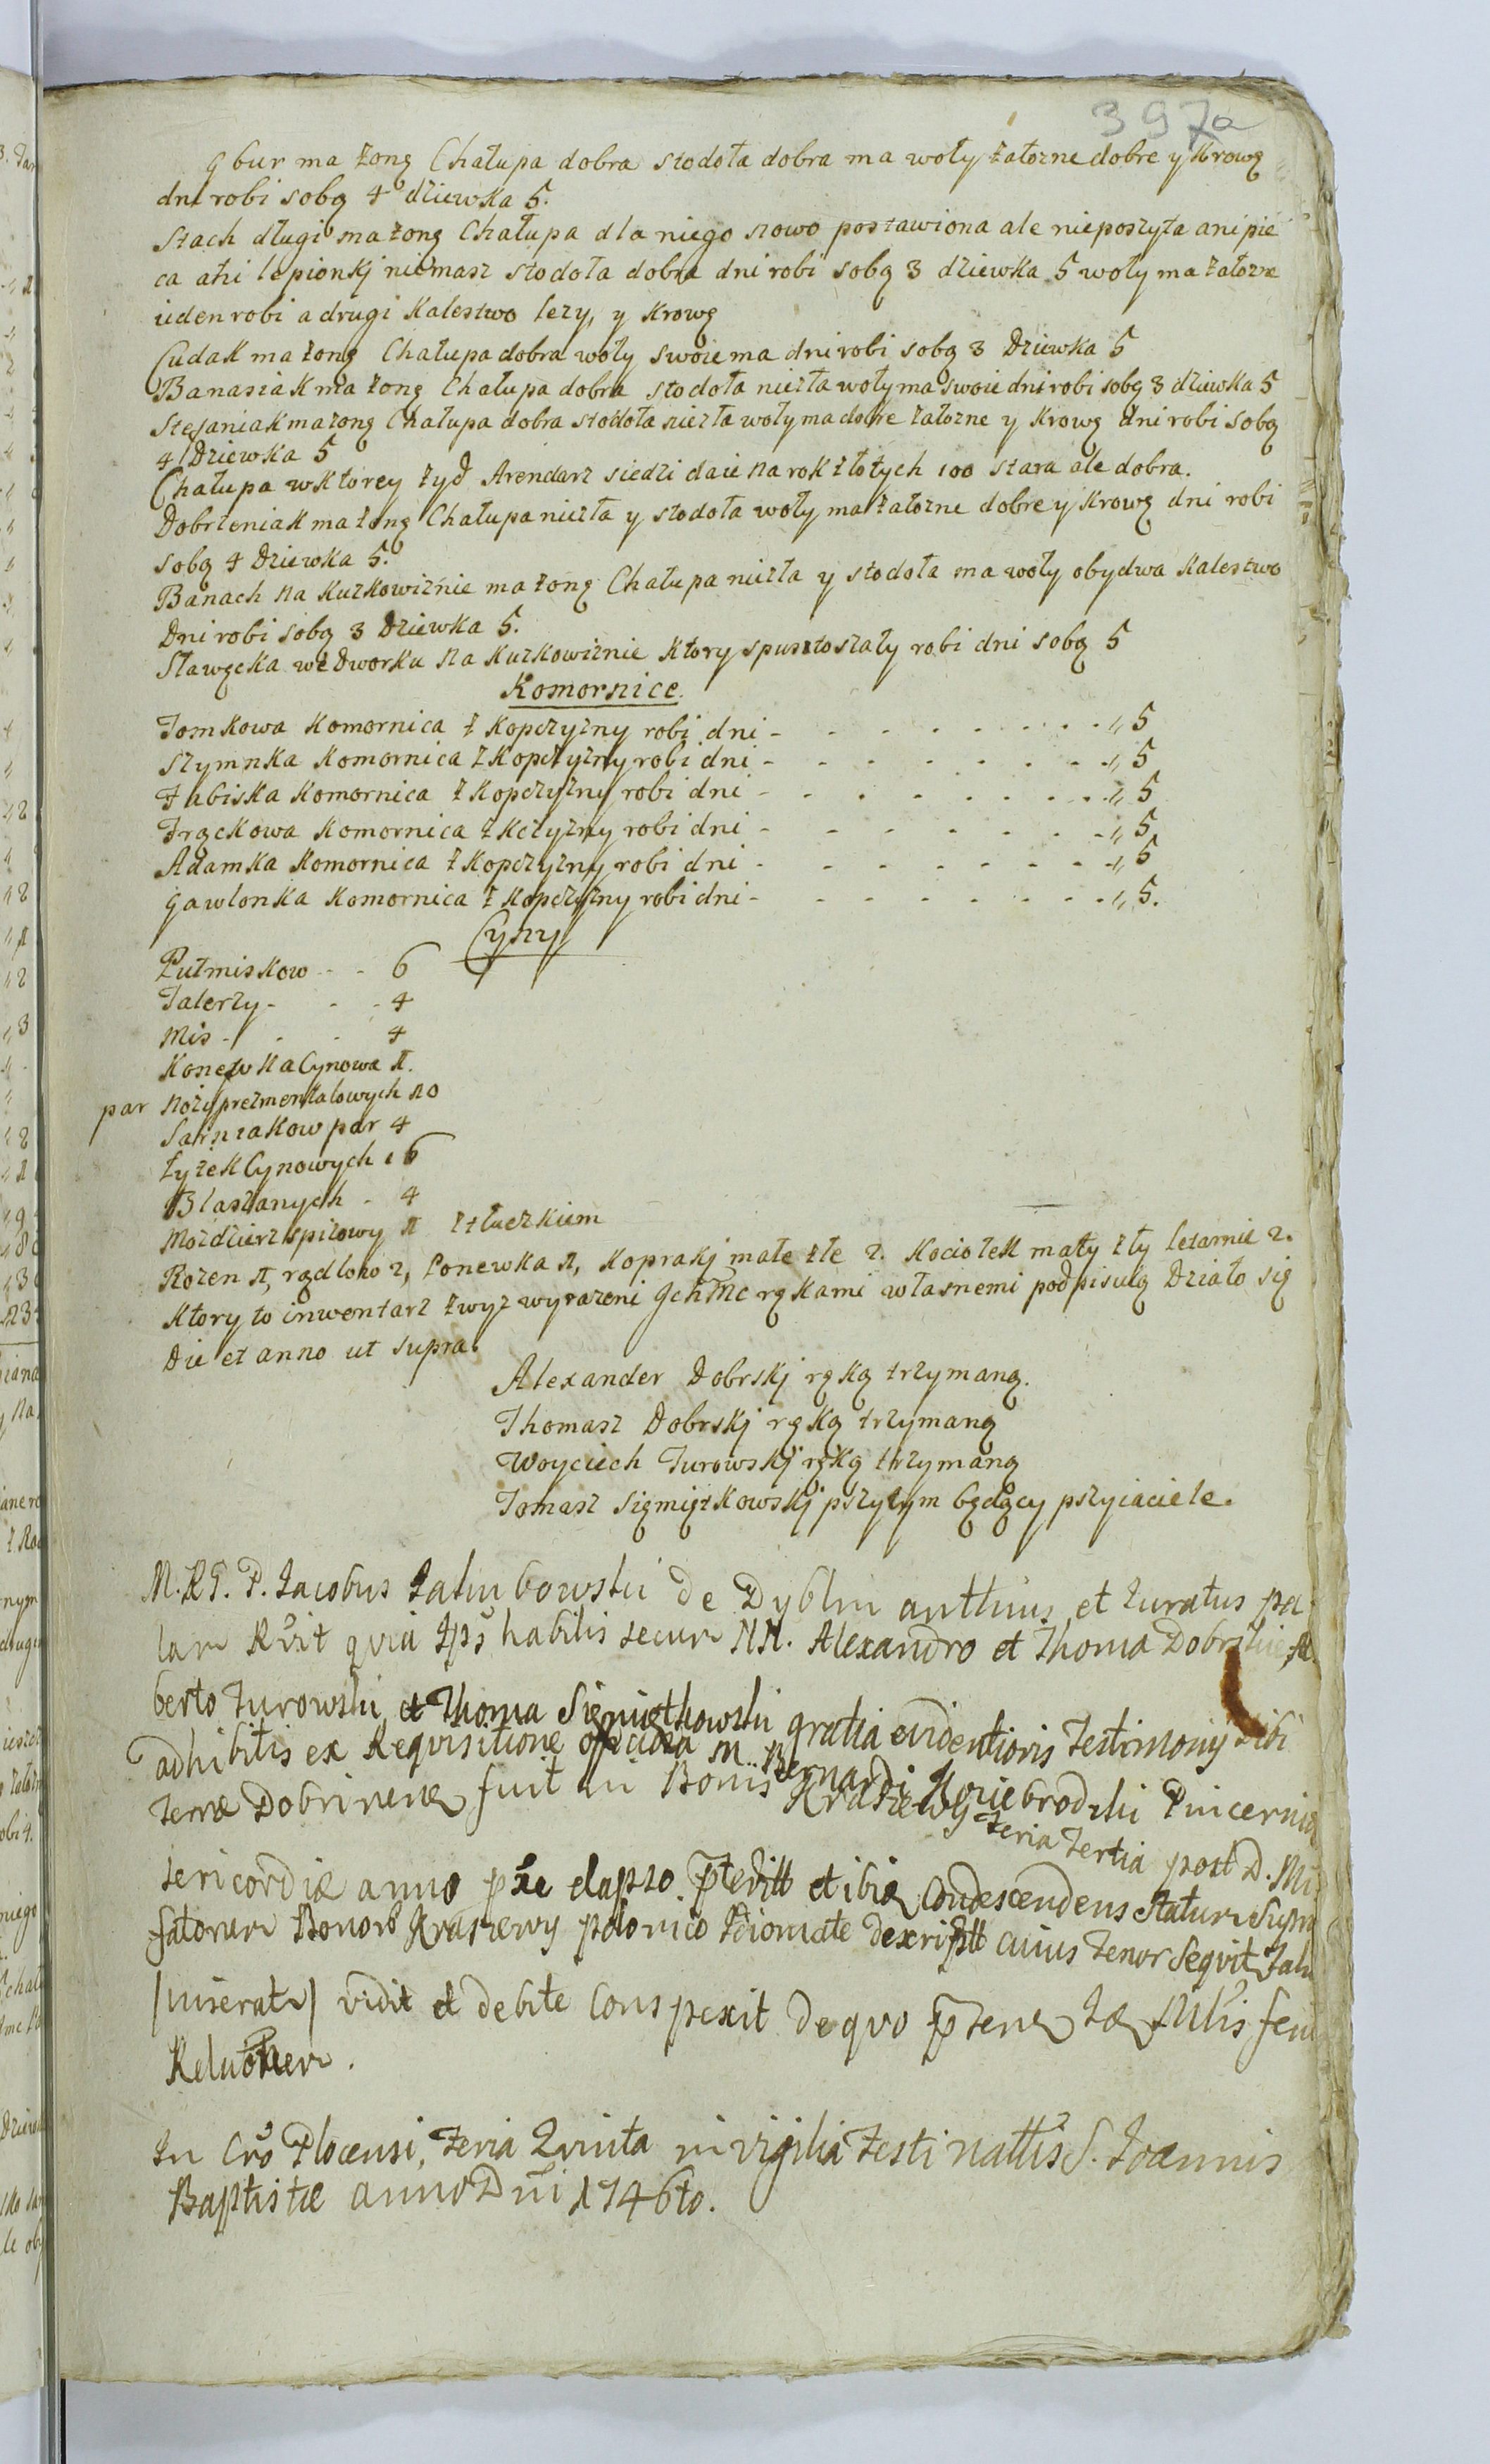 397a
gbur ma żonę Chałupa dobra stodoła dobra ma woły załozne dobre y Krowę
dni robi sobą 4 dziewka 5.
Stach długi ma żonę Chałupa dla niego nowo postawiona ale nieposzyta ani pie
ca ani lepionkj niemasz stodoła dobra dni robi sobą 3 dziewka 5 woły ma załozne
ieden robi a drugi Kalestwo lezy, y Krowę
Cudak ma żonę Chałupa dobra woły swoie ma dni robi sobą 3 Dziewka 5
Banasiak ma żonę Chałupa dobra stodoła niezła woły ma swoie dni robi sobą 3 dziewka 5
Stefaniak ma żonę Chałupa dobra stodoła niezła woły ma dobre załozne y Krowę dni robi sobą
4 Dziewka 5
Chałupa w Ktorey żyd Arendarz siedzi daie na rok złotych 100 stara ale dobra.
Dobrzeniak ma żonę Chałupa niezła y stodoła woły ma załozne dobre y Krowę dni robi
sobą 4 Dziewka 5.
Banach na Kuzkowiznie ma żonę Chałupa niezła y stodoła ma woły obydwa Kalestwo
Dni robi sobą 3 Dziewka 5.
Sławęcka we Dworku na Kuzkowiznie Ktory spustoszały robi dni sobą 5
Komornice.
Jomkowa Komornica z Kopczyzny robi dni - . . . . . . „ 5
Szymnka Komornica z Kopczyzny robi dni - . . . . . . „ 5
Fabiska Komornica z Kopczyzny robi dni - . . . . . . „ 5
Frąckowa Komornica z Kczyzny robi dni - . . . . . . „ 5
Adamka Komornica z Kopczyzny robi dni - . . . . . . „ 5
Gawlonka Komornica z Kopczyzny robi dni - . . . . . . „ 5.
Cyny
Pułmiskow - - 6
Talerzy - - - 4
Mis - . . 4
Konewka Cynowa 1.
par Nozy prezmentalowych 10
par 4
Łyżek Cynowych 16
Blaszanych - 4
Mozdzierz spizowy 1 z tłuczkiem
Rozen 1, rądlow 2, Ponewka 1, Koprakj małe złe 2. Kociołek mały zły 2.
Ktory to inwentarz zwyz wyrazeni Jchmc rękami własnemi podpisuią Działo się
Die et anno ut supra.
Alexander Dobrskj ręką trzymaną.
Thomasz Dobrskj ręką trzymaną
Woyciech Turowskj ręką trzymaną
Tomasz Siemiątkowskj przytym będący przyiaciele.
M. RG. P. Jacobus de Dyblin et Juratus pa
lam quia habilis secum NN. Alexandro et Thoma Dobrskie, Al
berto Turowski et Thoma Siemiątkowski gratia evidentioris Testimonij sibi
adhibitis ex Requisitione M. Bernardi Koziebrodzki Pincernia
Terræ Dobrinens fuit in Bonis Kraszewy Feria Tertia post D. Mi
sericordiæ anno elapso et ibiq Condescendens Statum Supra
fatorum Bonor Kraszewy polonico Idiomate cuius Tenor Seqvit
vidit et debite Conspexit de quo
In Cro Plocensi, Feria Quinta in vigilia Festi nattis S. Joannis
Baptistæ anno Dni 1746to.